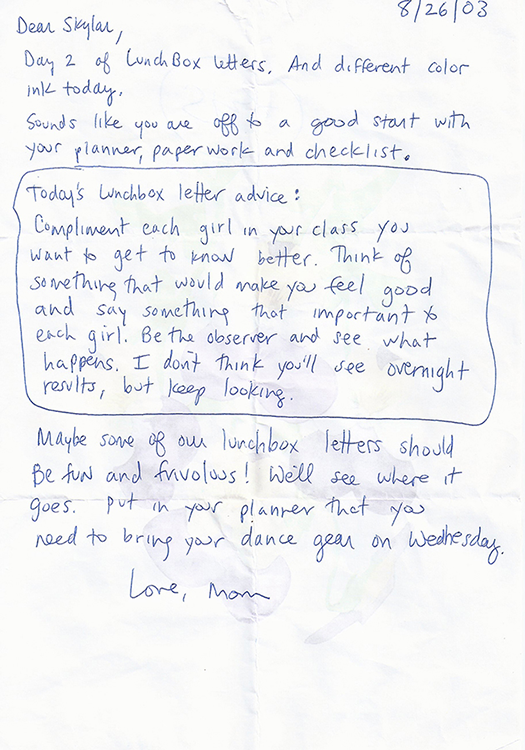 8/26/03
Dear Skylar,
Day 2 of LunchBox letters. And different color
ink today.
Sounds like you are off to a good start with
your planner, paperwork and checklist.
Today's lunchbox letter advice:
Compliment each girl in your class you
want to get to know better. Think of
something that would make you feel good
and say something that important to
each girl. Be the observer and see what
happens. I don't think you'll see overnight
results, but keep looking.
Maybe some of our lunchbox letters should
Be fun and frivolous! We'll see where it
goes. Put in your planner that you
need to bring your dance gear on Wednesday.
Love, Mom